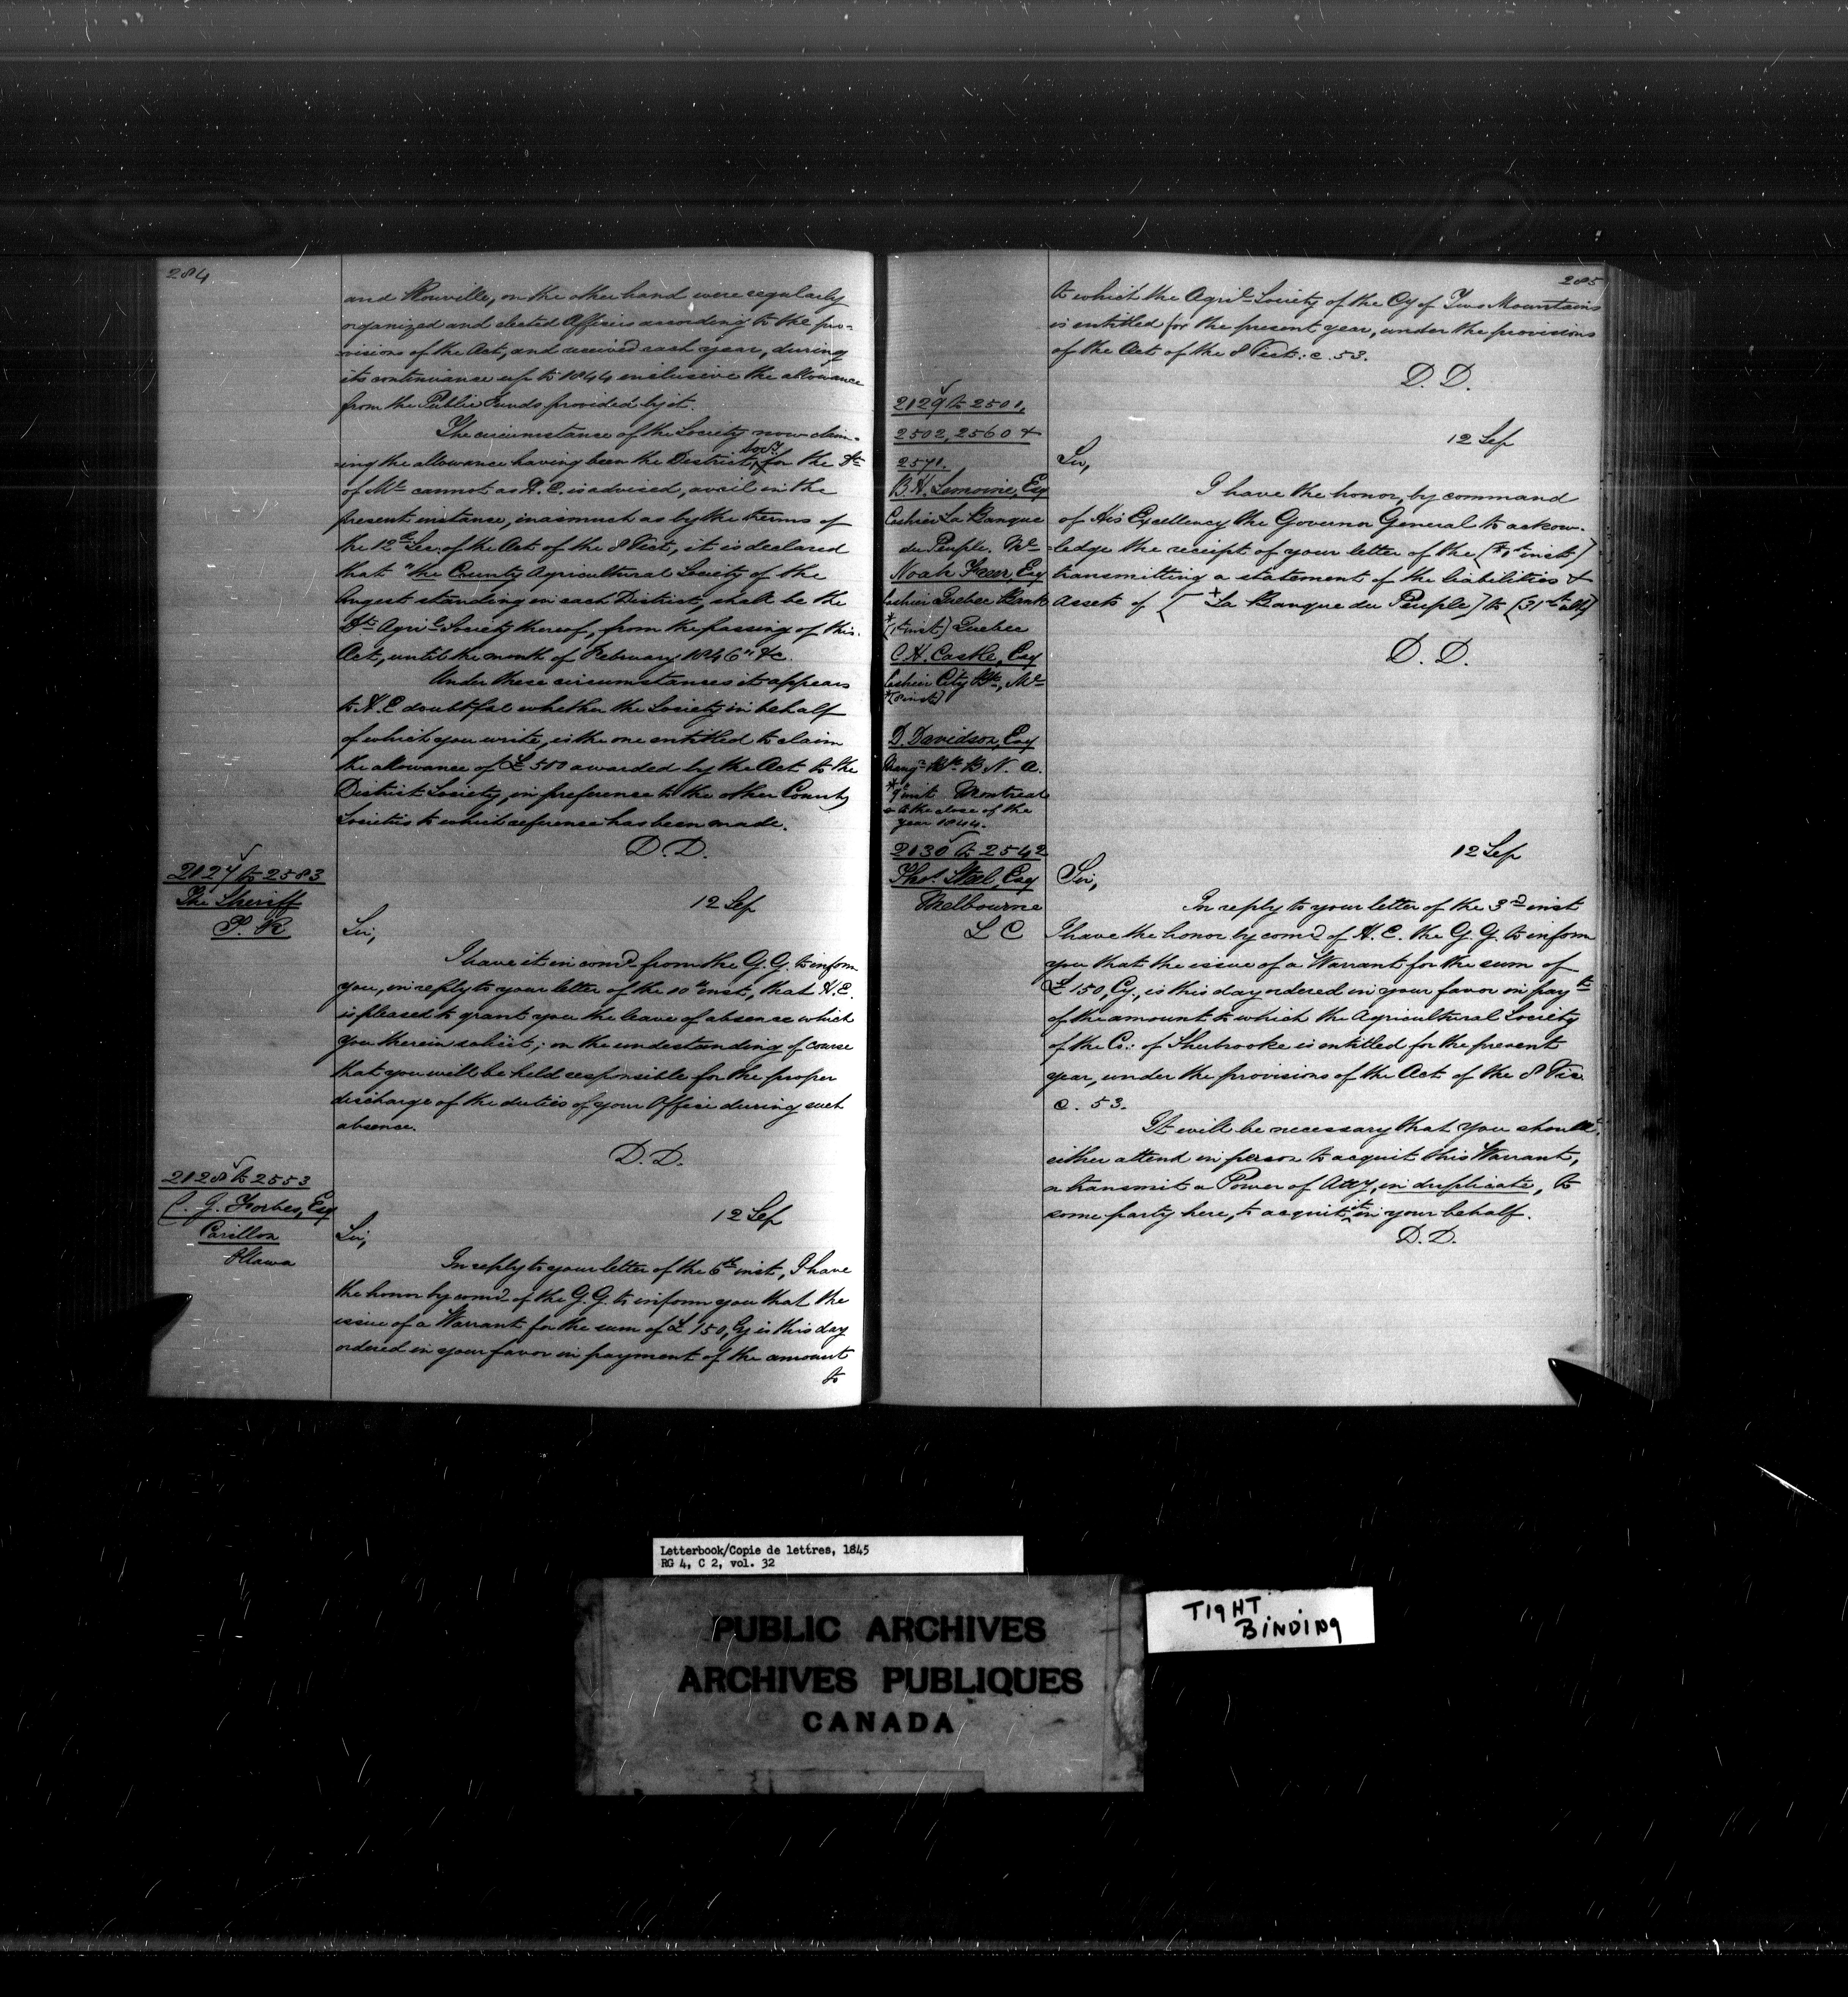 284
and Rouville, on the other hand were regularly
organized and elected Officers according to the pro-
visions of the Act, and received each year, during
its continuance up to 1844 inclusive the allowance
from the Public Funds provided by it.
The circumstance of the Society now claim-
ing the allowance having been the District Socy. for the Dt.
of Ml. cannot as H. E. is advised, avail in the
present instance, inasmuch as by the terms of
the 12th Sec: of the Act of the 8 Vict, it is declared
that "the County Agricultural Society of the
longest standing in each District, shall be the
Dt. Agril. Society thereof, from the passing of this
Act, until the month of February 1846" &c.
Under these circumstances it appears
to H. E doubtful whether the Society in behalf
of which you write, is the one entitled to claim
the allowance of £500 awarded by the Act to the
District Society, in preference to the other County
Societies to which reference has been made.
D. D.
2127 to 2583
The Sheriff
12 Sep
Sir,
I have it in comd. from the G. G. to inform
you, in reply to your letter of the 10th inst, that H. E.
is pleased to grant you the leave of absence which
you therein solicit; on the understanding of course
that you will be held responsible for the proper
discharge of the duties of your Office during such
absence.
D. D.
2128 to 2553
C. G. Forbes, Esq
Carillon
Ottawa
12 Sep
Sir,
In reply to your letter of the 6th inst, I have
the honor by comd. of the G. G. to inform you that the
issue of a Warrant for the sum of £150, Cy is this day
ordered in your favor in payment of the amount
to
285
to which the Agril. Society of the Cy of Two Mountains
is entitled for the present year, under the provisions
of the Act of the 8 Vict: c. 53.
D. D.
2129 to 2501,
2502, 2560 &
2571.
B. H. Lemoine, Esq
Cashier La Banque
du Peuple. Ml.
Noah Freer, Esq
Cashier Quebec Bank
* (1st inst) Quebec
C. H. Castle, Esq
Cashier City Bk., Ml.
* (8 inst)
D. Davidson, Esq
Mangr. Bk. B. N. A.
* 9th inst Montreal
at the close of the
year 1844.
12 Sep
Sir,
I have the honor, by command
of His Excellency the Governor General to acknow-
ledge the receipt of your letter of the inst)
transmitting a statement of the liabilities &
Assets of [La Banque du Peuple] to (31st ulto)
D. D.
2130 to 2542
Thos. Steel, Esq
Melbourne
L C
12 Sep
Sir,
In reply to your letter of the 3rd inst
I have the honor by comd. of H. E. the G. G. to inform
you that the issue of a Warrant for the sum of
£150, Cy., is this day ordered in your favor in payt.
of the amount to which the Agricultural Society
of the Co: of Sherbrooke is entitled for the present
year, under the provisions of the Act of the 8 Vic.
c. 53.
It will be necessary that you should
either attend in person to acquit this Warrant,
or transmit a Power of Atty, in duplicate, to
some party here, to acquit it in your behalf.
D. D.
Letterbook/Copie de lettres, 1845
RG 4, C 2, vol. 32
PUBLIC ARCHIVES
ARCHIVES PUBLIQUES
CANADA
TIGHT
BINDING